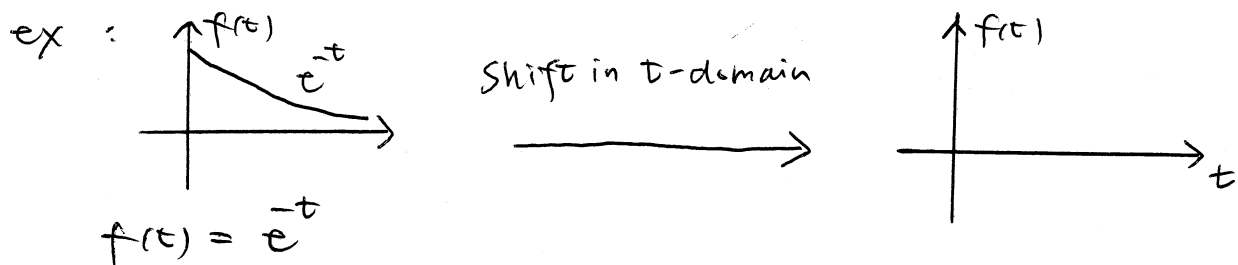 ex : f(t) f(t)
e^{-t}
Shift in t-domain
t
f(t) = e^{-t}